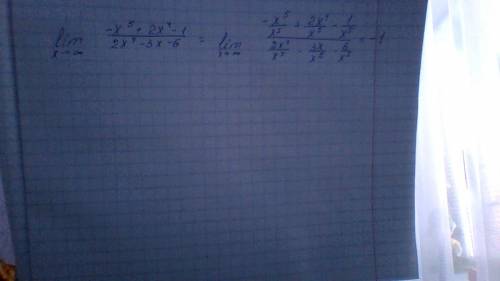 lim x→∞ (-x^5 + 2x^4 - 1)/(2x^4 - 3x - 6) = lim x→∞ (-x^5/x^5 + 2x^4/x^5 - 1/x^5)/(2x^4/x^5 - 3x/x^5 - 6/x^5) = -1